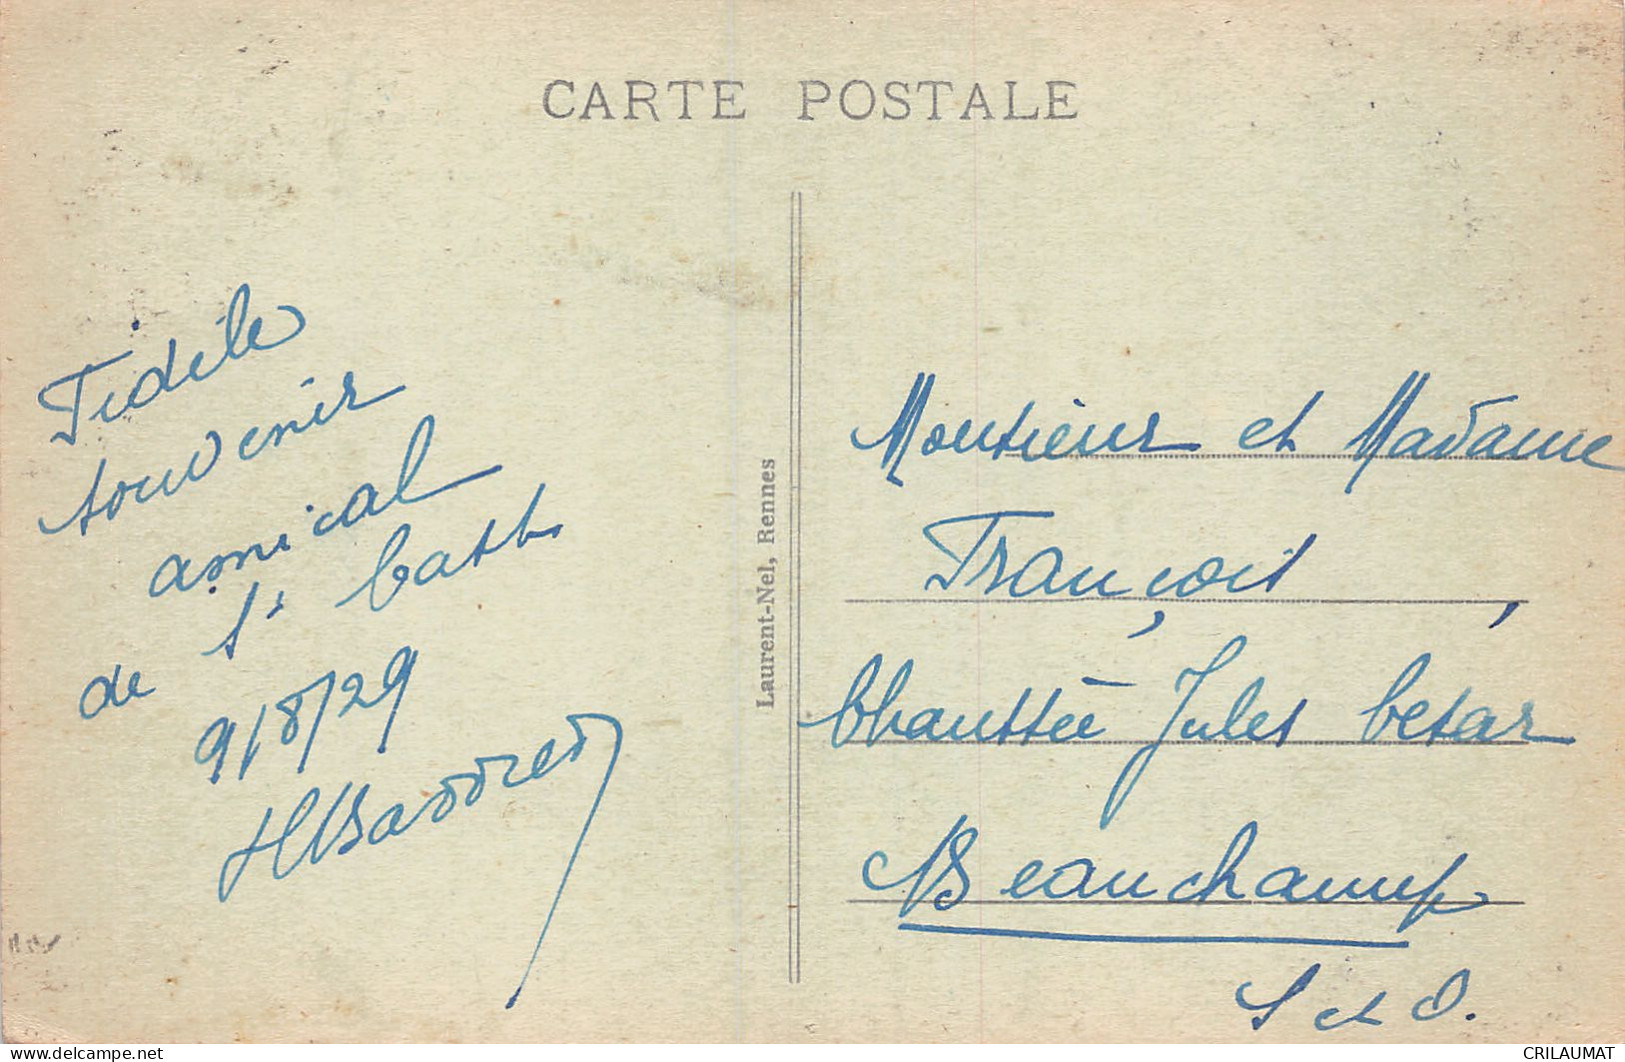 CARTE POSTALE
Fidèle
souvenir
amical
de St Cast
9/8/29
Laurent-Nel, Rennes
Monsieur et Madame
François,
Chaussée Jules Cesar
Beauchamp
S et O.
CRILAUMAT